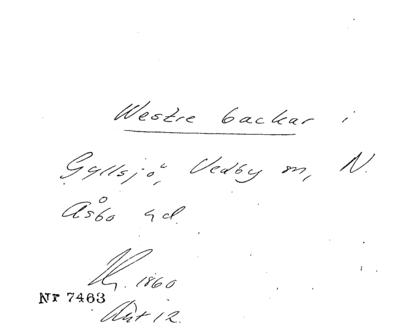 Westre backar i
Gyllsjö, Vedby sn, N.
Åsbo hd.
1860
Nr 7463
Akt 12.